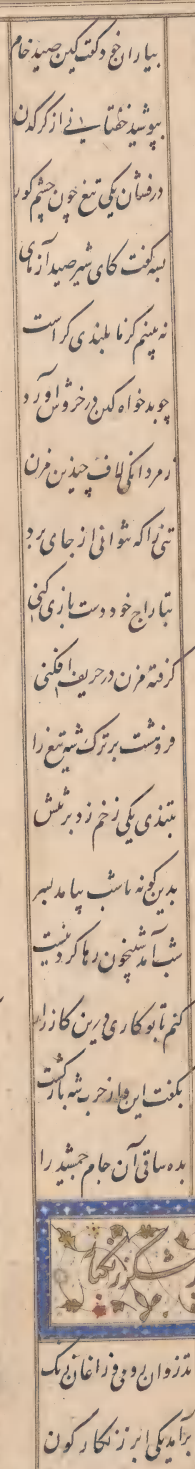 بیاران خود گفت کین صید خام
بپوشید خفتانی از کرگدن
درفشان یکی تیغ چون چشم کور
بشه گفت کای شیر صید آزمای
نه بینم کرنا بلندی کراست
چو بدخواه کین در خروش آورد
ز مردانگی لاف چندین مزن
تنی را که نتوانی از جای برد
بتاراج خود دست بازی کنی
گرفته مزن در حریف افکنی
فروهشت بر ترک شه تیغ را
بتندی یکی زخم زد بر تنش
بدین گونه تا شب بیامد بسر
شب آمد شبیخون رها کرد نیست
کنم تا تو کاری درین کارزار
بگفت این و از حرب شه بازگشت
بده ساقی آن جام جمشید را
تذروان رومی و زاغان زنگ
برآمد یکی ابر زنگارگون